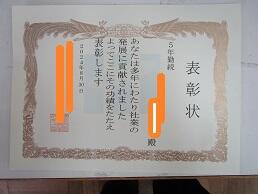 表彰状
５年勤続
殿
あなたは多年にわたり社業の
発展に貢献されました
よってここにその功績をたたえ
表彰します
２０２４年８月３０日